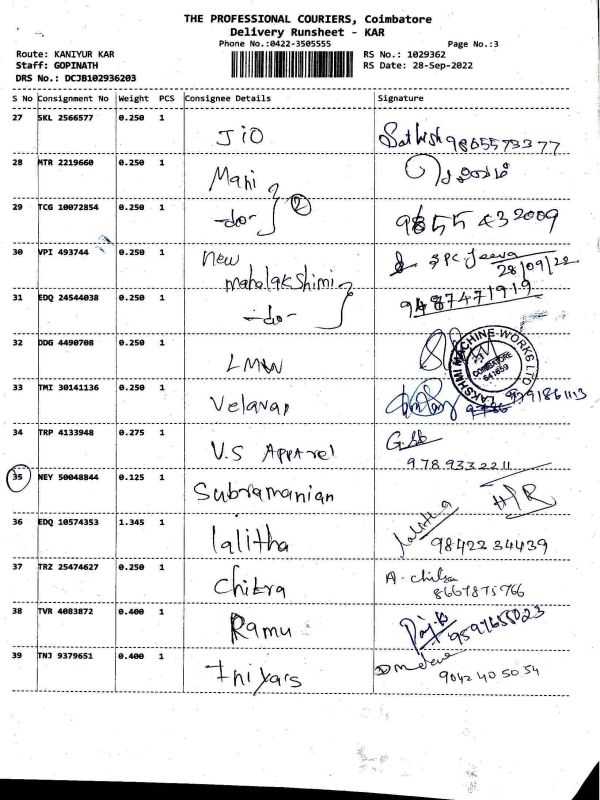 THE PROFESSIONAL COURIERS, Coimbatore
Delivery Runsheet - KAR
Phone No.:0422-3505555 Page No.:3
Route: KANIYUR KAR RS No.: 1029362
Staff: GOPINATH RS Date: 28-Sep-2022
DRS No.: DCJB102936203
S No Consignment No Weight PCS Consignee Details Signature
27 SKL 2566577 0.250 1 JiO Sathish 9865573377
28 MTR 2219660 0.250 1 Mani
29 TCG 10072854 0.250 1 -do- 2 9855432009
30 VPI 493744 0.250 1 New Mahalakshimi SPC-Jeeva 28/09/22
31 EDQ 24544038 0.250 1 -do- 9487471919
32 DDG 4490708 0.250 1 LMW LAKSHMI MACHINE WORKS LTD COIMBATORE 641659
33 TMI 30141136 0.250 1 Velavan 9791861113
34 TRP 4133948 0.275 1 V.S APPArel 9789332211
35 NEY 50048844 0.125 1 Subramanian
36 EDQ 10574353 1.345 1 lalitha Lalitha 9842234439
37 TRZ 25474627 0.250 1 Chitra A. Chitra 8667875766
38 TVR 4083872 0.400 1 Ramu 9597655023
39 TNJ 9379651 0.400 1 9042405054